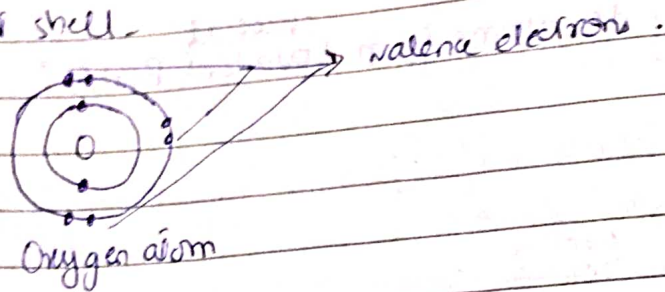 shell.
valence electrons.
O
Oxygen atom